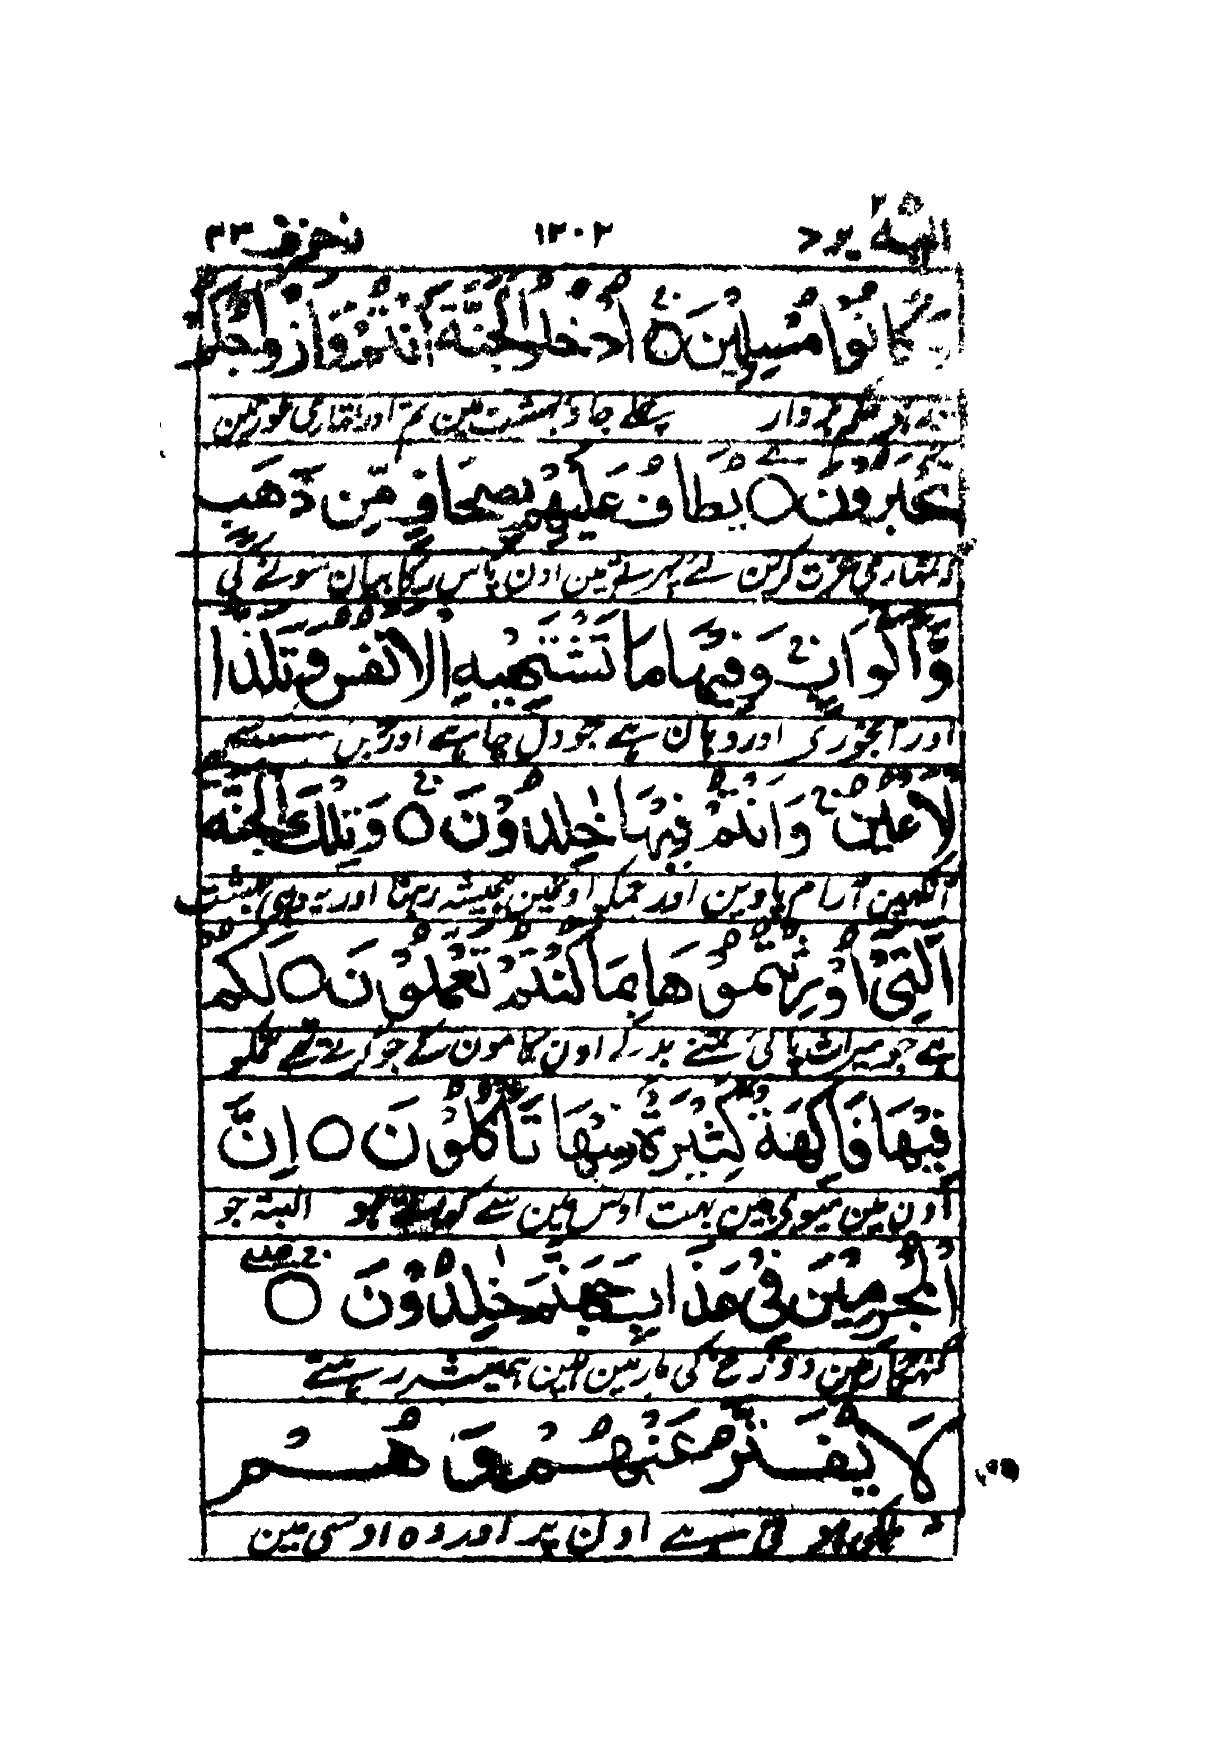 الیه یرد ٢٥ ١٣٠٢ زخرف ٤٣
وَكَانُوْا مُسْلِمِيْنَ ۝ اُدْخُلُوا الْجَنَّةَ اَنْتُمْ وَاَزْوَاجُكُمْ
حکم بردار چلے جاؤ بہشت مین تم اور تمہاری عورتین
تُحْبَرُوْنَ ۝ يُطَافُ عَلَيْهِمْ بِصِحَافٍ مِّنْ ذَهَبٍ
کہ تمہاری عزت کرین لئے پہرتے ہین اون پاس رکابیان سونے کی
وَّاَكْوَابٍ وَفِيْهَا مَا تَشْتَهِيْهِ الْاَنْفُسُ وَتَلَذُّ ا
اور آبخورے اور وہان ہے جو دل چاہے اور جس سے
لْاَعْيُنُ وَاَنْتُمْ فِيْهَا خٰلِدُوْنَ ۝ وَتِلْكَ الْجَنَّةُ
آنکھین آرام پاوین اور تمکو اونمین ہمیشہ رہنا اور یہ وہی بہشت
الَّتِيْ اُوْرِثْتُمُوْهَا بِمَا كُنْتُمْ تَعْمَلُوْنَ ۝ لَكُمْ
ہے جو میراث پائی تمنے بدلے اون کامون کے جو کرتے تھے تمکو
فِيْهَا فَاكِهَةٌ كَثِيْرَةٌ مِّنْهَا تَأْكُلُوْنَ ۝ اِنَّ
اون مین میوی ہین بہت اوس مین سے کھاتے ہو البتہ جو
الْمُجْرِمِيْنَ فِيْ عَذَابِ جَهَنَّمَ خٰلِدُوْنَ ۝
گنہگار ہین دوزخ کی مار مین ہین ہمیشہ رہتے
لَا يُفَتَّرُ عَنْهُمْ وَهُمْ
نہ ہلکی ہوتی ہے اون پر اور وہ اوسی مین